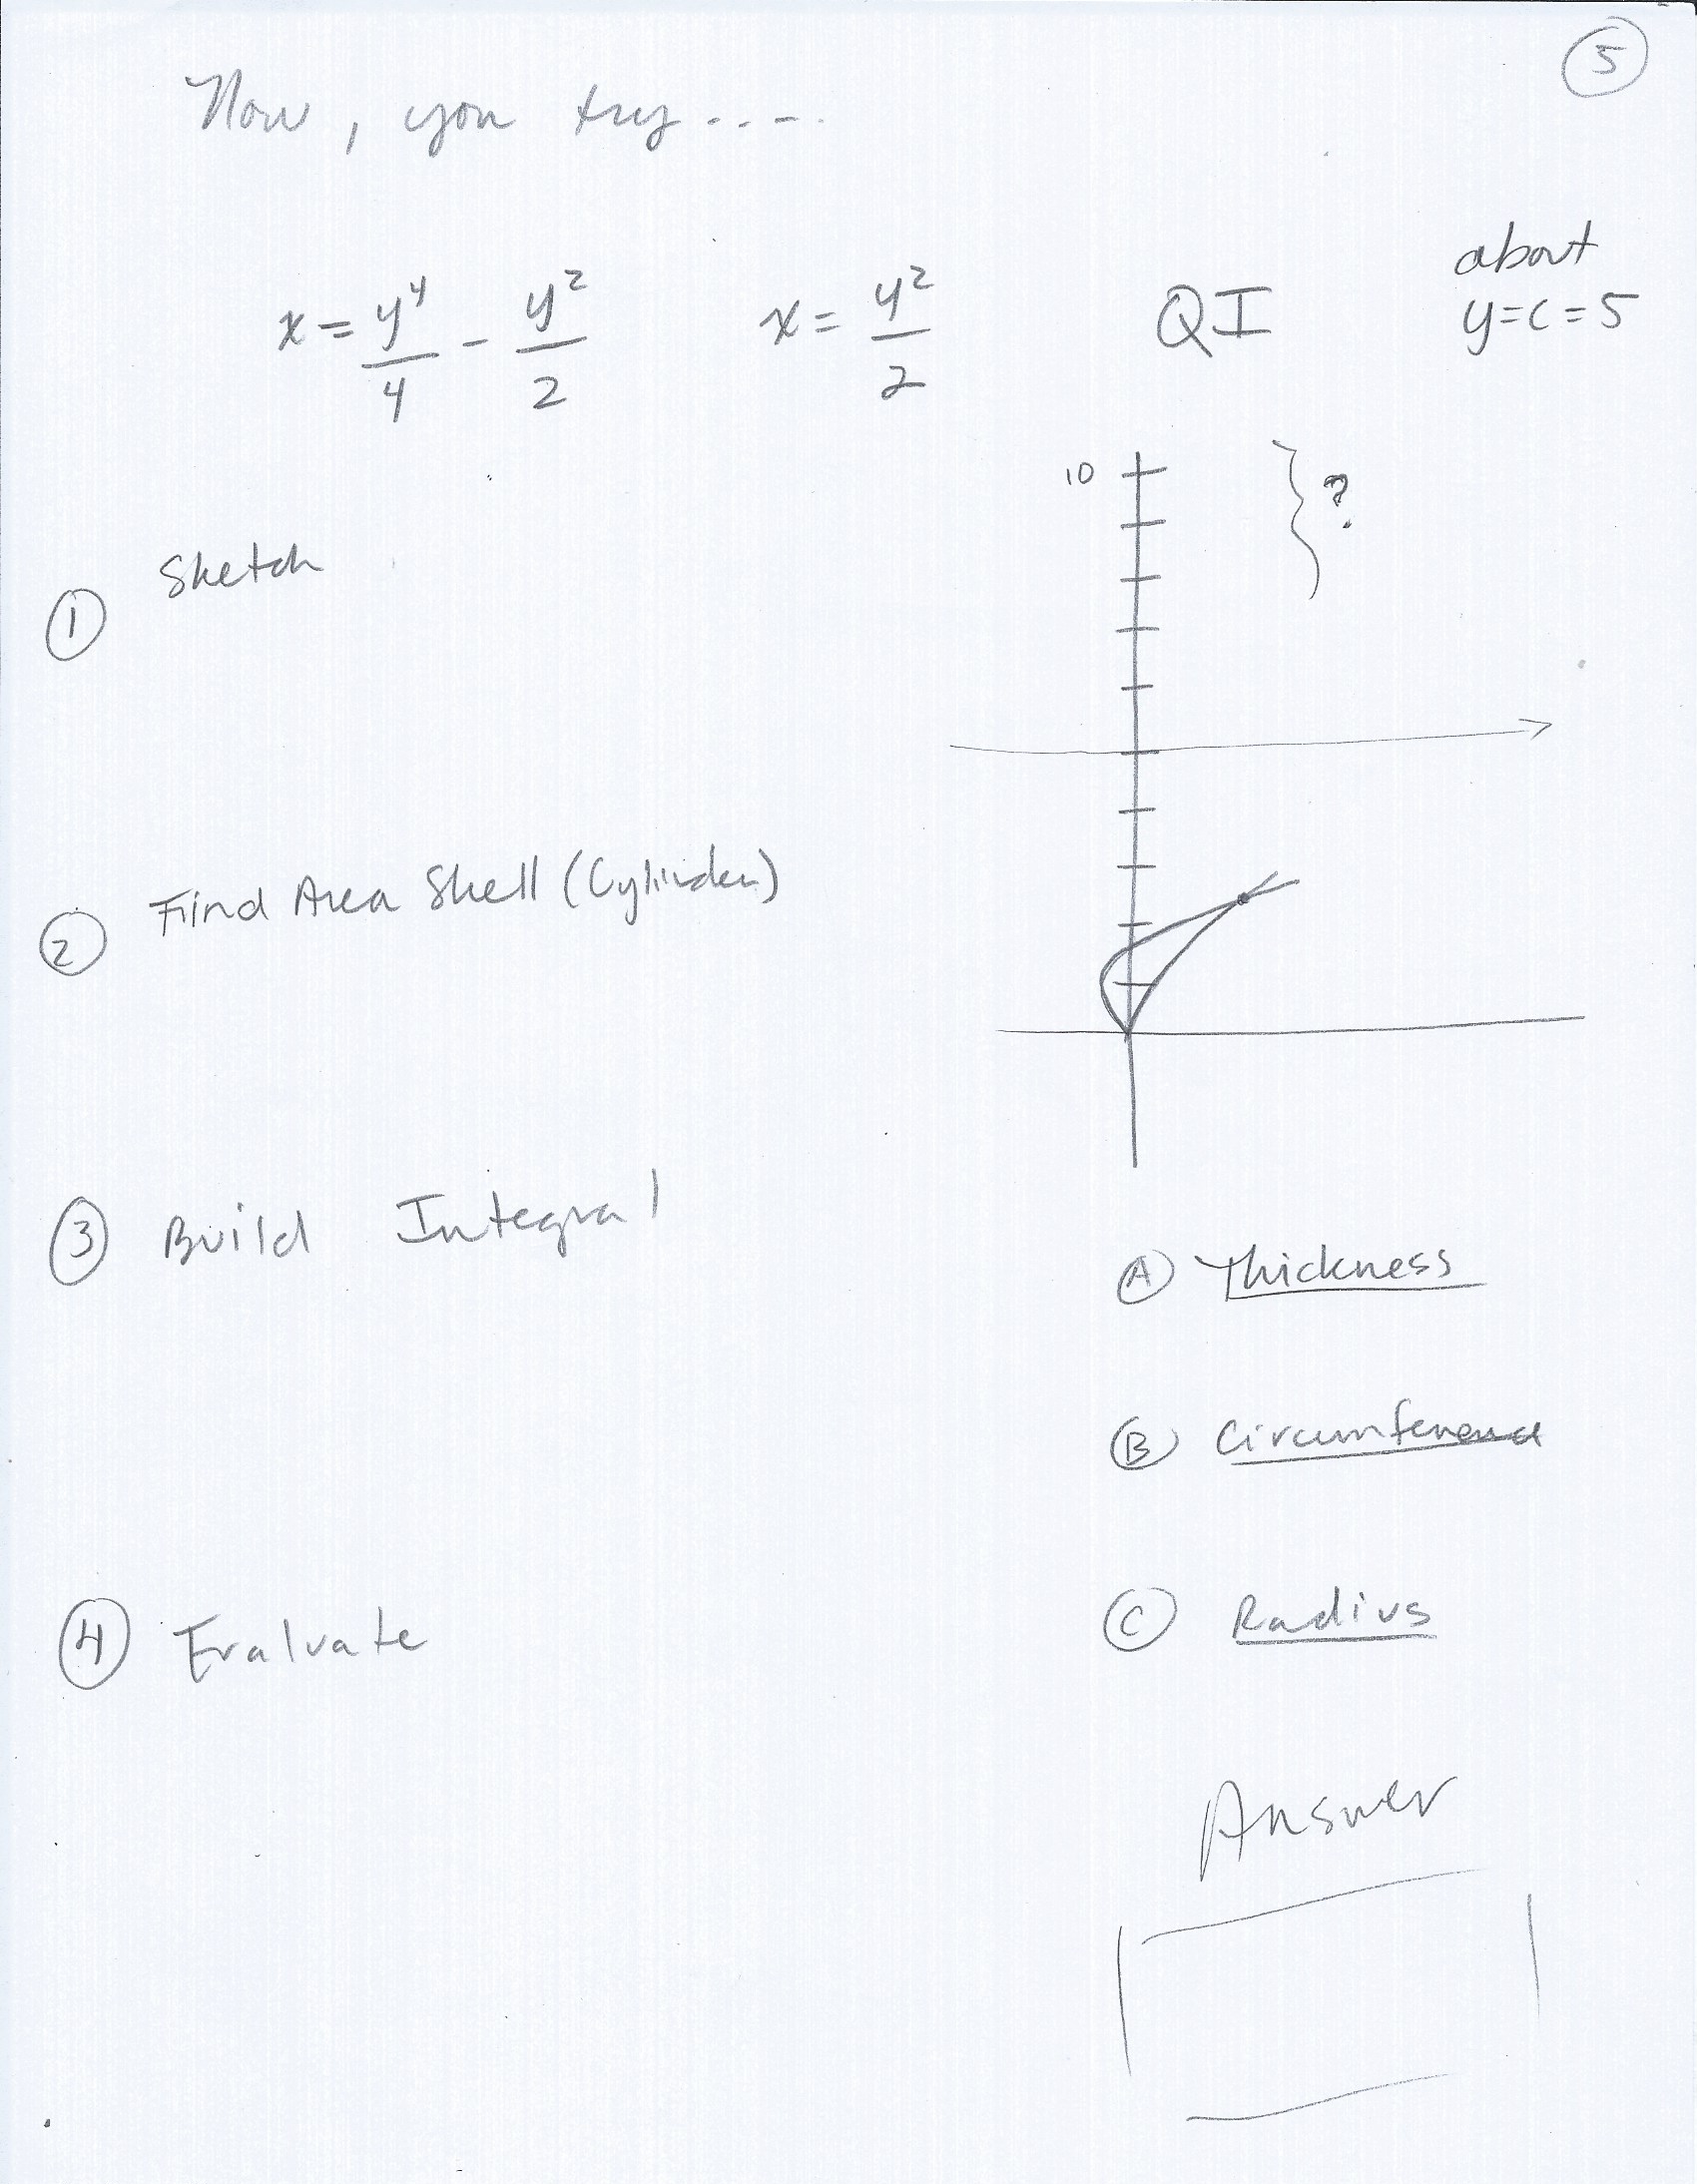 5
Now, you try....
x = y⁴/4 - y²/2    x = y²/2    QI    about y=c=5
10    ?
① Sketch
② Find Area Shell (Cylinder)
③ Build Integral
Ⓐ Thickness
Ⓑ Circumference
Ⓒ Radius
④ Evaluate
Answer